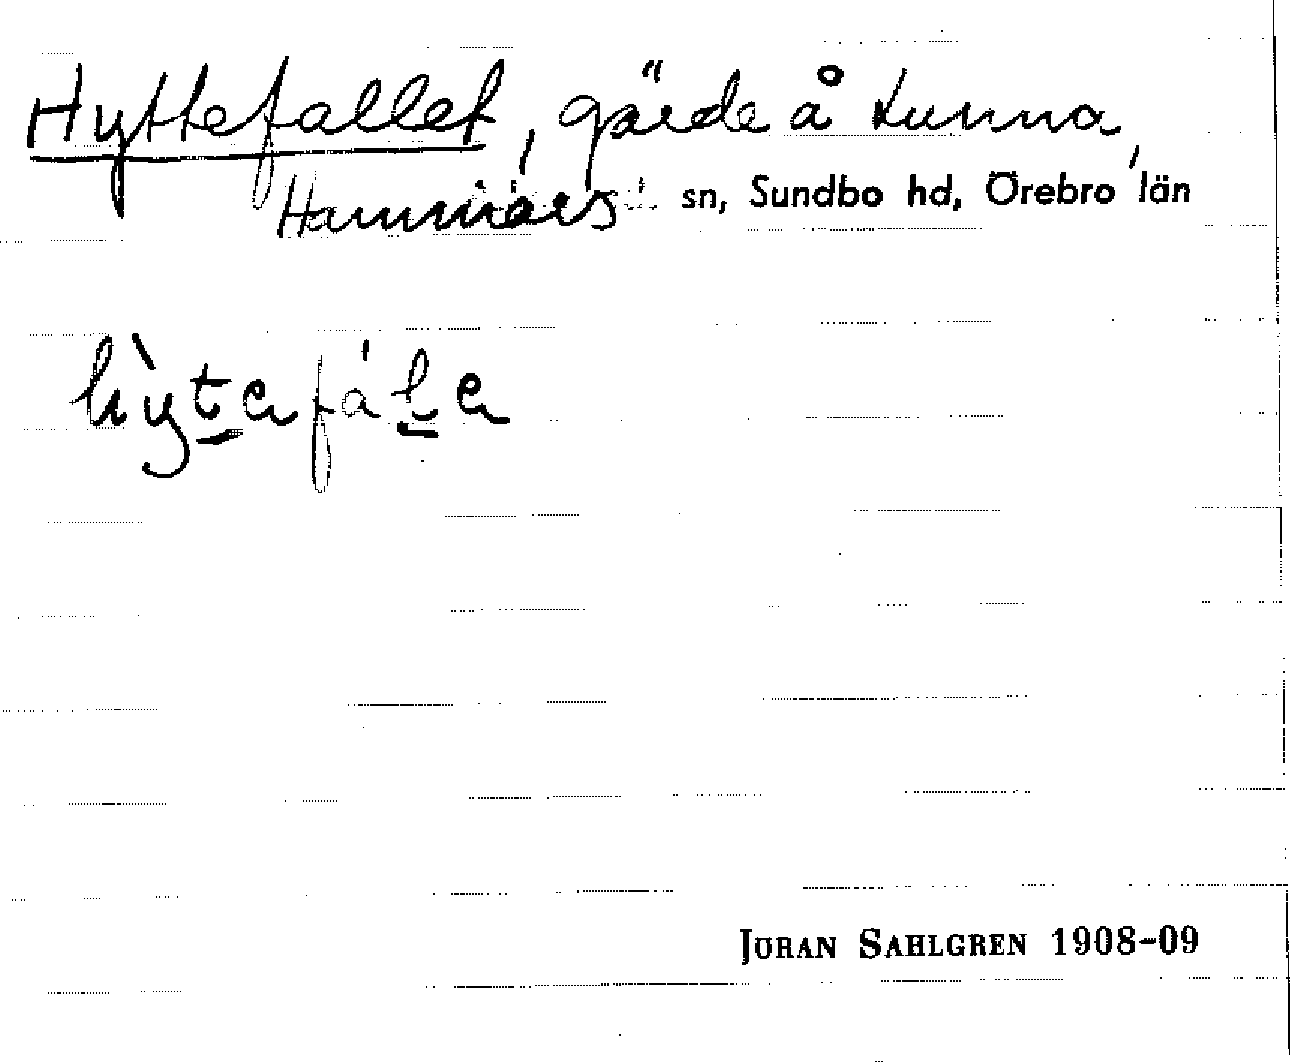 Hyttefallet, gärde å Kunna,
Hammars sn, Sundbo hd, Örebro län
hỳtefáḻe
JÖRAN SAHLGREN 1908-09